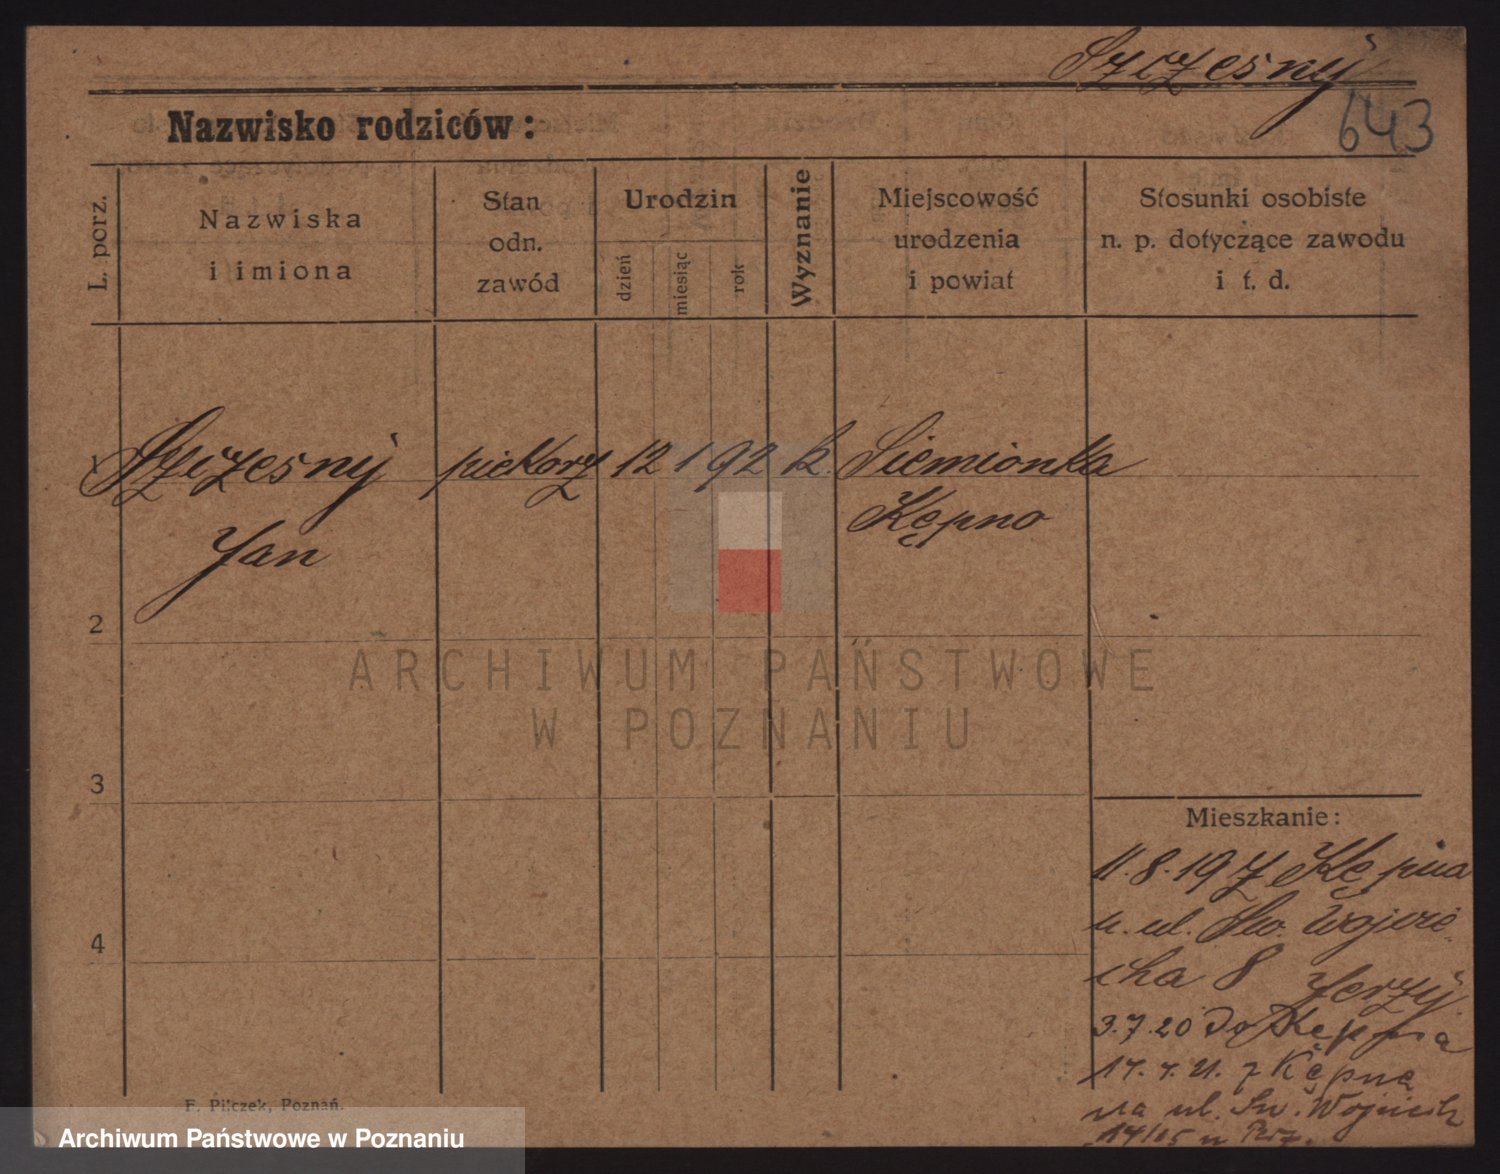 Szczesny
643
Nazwisko rodziców:
L. porz.
Nazwiska
i imiona
Stan
odn.
zawód
Urodzin
dzień
miesiąc
rok
Wyznanie
Miejscowość
urodzenia
i powiat
Stosunki osobiste
n. p. dotyczące zawodu
i t. d.
1 Szczesny piekarz 12 1 92 k. Siemionka
Jan Kępno
2
ARCHIWUM PAŃSTWOWE
W POZNANIU
3
Mieszkanie:
11.8.19 z Kępna
u. ul. Św. Wojcie
4
cha 8 Jerzy
3.7.20 do Kępna
z Kępna
na ul. Św. Wojciech
F. Pilczek, Poznań.
Archiwum Państwowe w Poznaniu